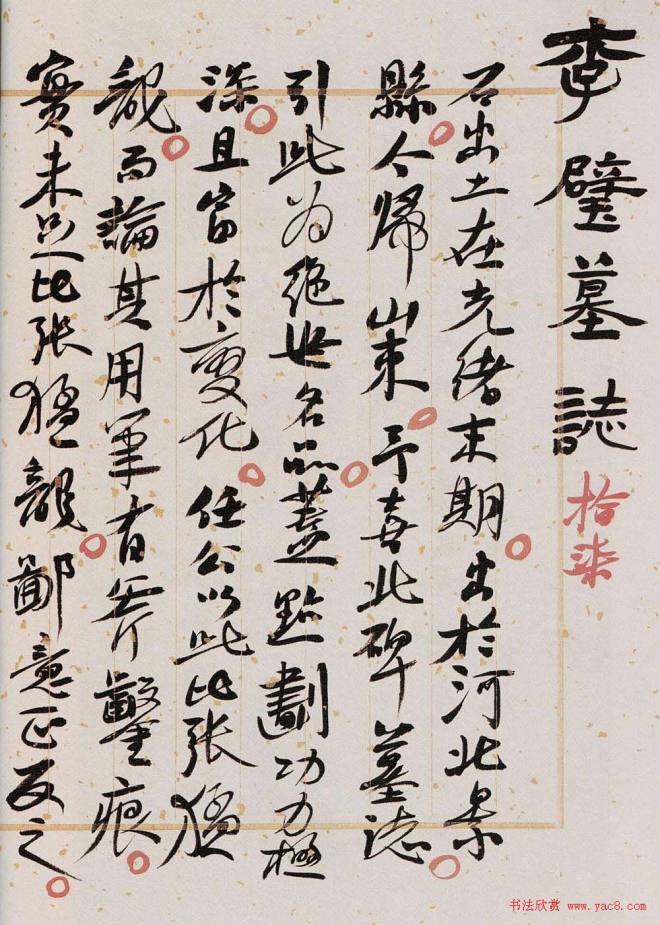 李璧墓誌
拾柒
石出土在光緒末期出於河北景
縣今歸山東予喜此碑墓誌
引此为絶世名品蓋點劃功力極
深且富於變化任公以此比张猛
龍而論其用笔有斧鑿痕
實未足比张猛龍鄙意正反之
书法欣赏 www.yac8.com